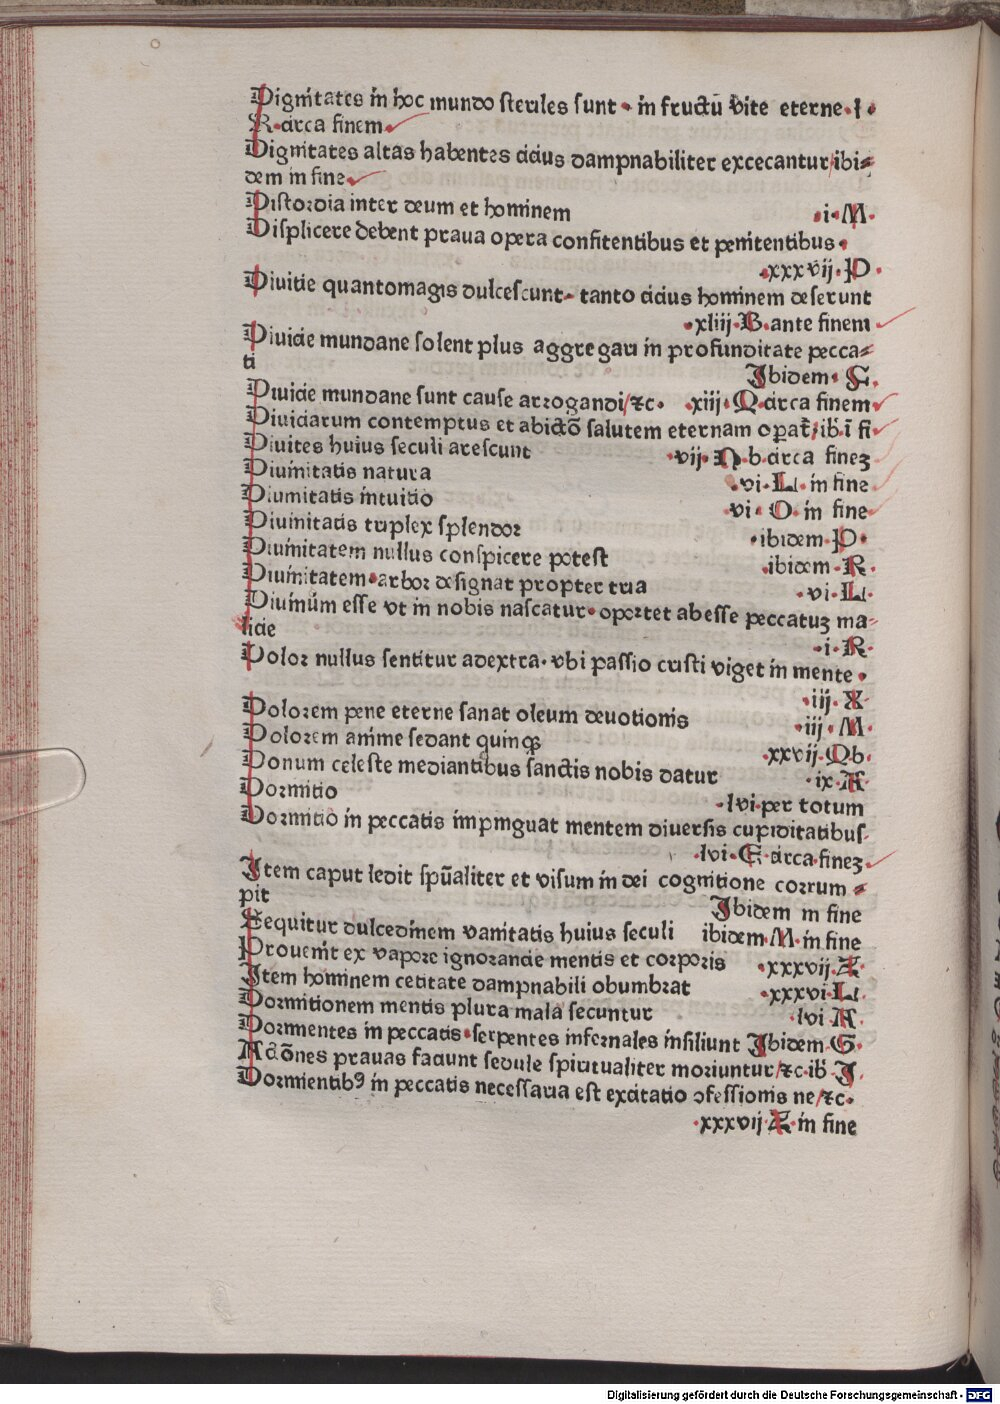 Dignitates in hoc mundo steriles sunt · in fructū vite eterne · l ·
R · circa finem
Dignitates altas habentes cicius dampnabiliter excecantur / ibi⸗
dem in fine
Discordia inter deum et hominem · i · M ·
Displicere debent praua opera confitentibus et penitentibus ·
· xxxvij · P ·
Divitie quantomagis dulcescunt · tanto cicius hominem deserunt
· xliij · B · ante finem
Diuicie mundane solent plus aggregari in profunditate pecca⸗
ti Ibidem · C ·
Diuicie mundane sunt cause arrogandi / ⁊c · xiij · Q · circa finem
Diuiciarum contemptus et abictō salutem eternam oꝑat̄ / ib̄ ī fi
Diuites huius seculi arescunt · vij · N · b · circa fineꝫ
Diuinitatis natura · vi · L · in fine
Diuinitatis intuitio · vi · O · in fine
Diuinitatis triplex splendor · ibidem · P ·
Diuinitatem nullus conspicere potest · ibidem · R ·
Diuinitatem · arbor designat propter tria · vi · L ·
Diuinūm esse vt in nobis nascatur · oportet abesse peccatuꝫ ma⸗
licie · i · R ·
Dolor nullus sentitur adextra · vbi passio cristi viget in mente ·
· iij · X ·
Dolorem pene eterne sanat oleum deuotionis · iij · M ·
Dolorem anime sedant quinqꝫ · xxvij · Qb ·
Donum celeste mediantibus sanctis nobis datur · ix · A ·
Dormitio · lvi · per totum
Dormitio in peccatis impinguat mentem diuersis cupiditatibus ·
· lvi · E · circa fineꝫ
Item caput ledit spūaliter et visum in dei cognitione corrum⸗
pit Ibidem in fine
Sequitur dulcedinem vanitatis huius seculi ibidem · M · in fine
Prouenit ex vapore ignorancie mentis et corporis · xxxvij · A ·
Item hominem cecitate dampnabili obumbrat · xxxvi · L ·
Dormitionem mentis plura mala secuntur · lvi A ·
Dormientes in peccatis · serpentes infernales insiliunt Ibidem · G ·
Actōnes prauas faciunt sedule spiritualiter moriuntur / ⁊c · ib̄ · I ·
Dormientibꝰ in peccatis necessaria est excitatio ꝯfessionis ne / ⁊c ·
· xxxvij · A · in fine
Digitalisierung gefördert durch die Deutsche Forschungsgemeinschaft - DFG